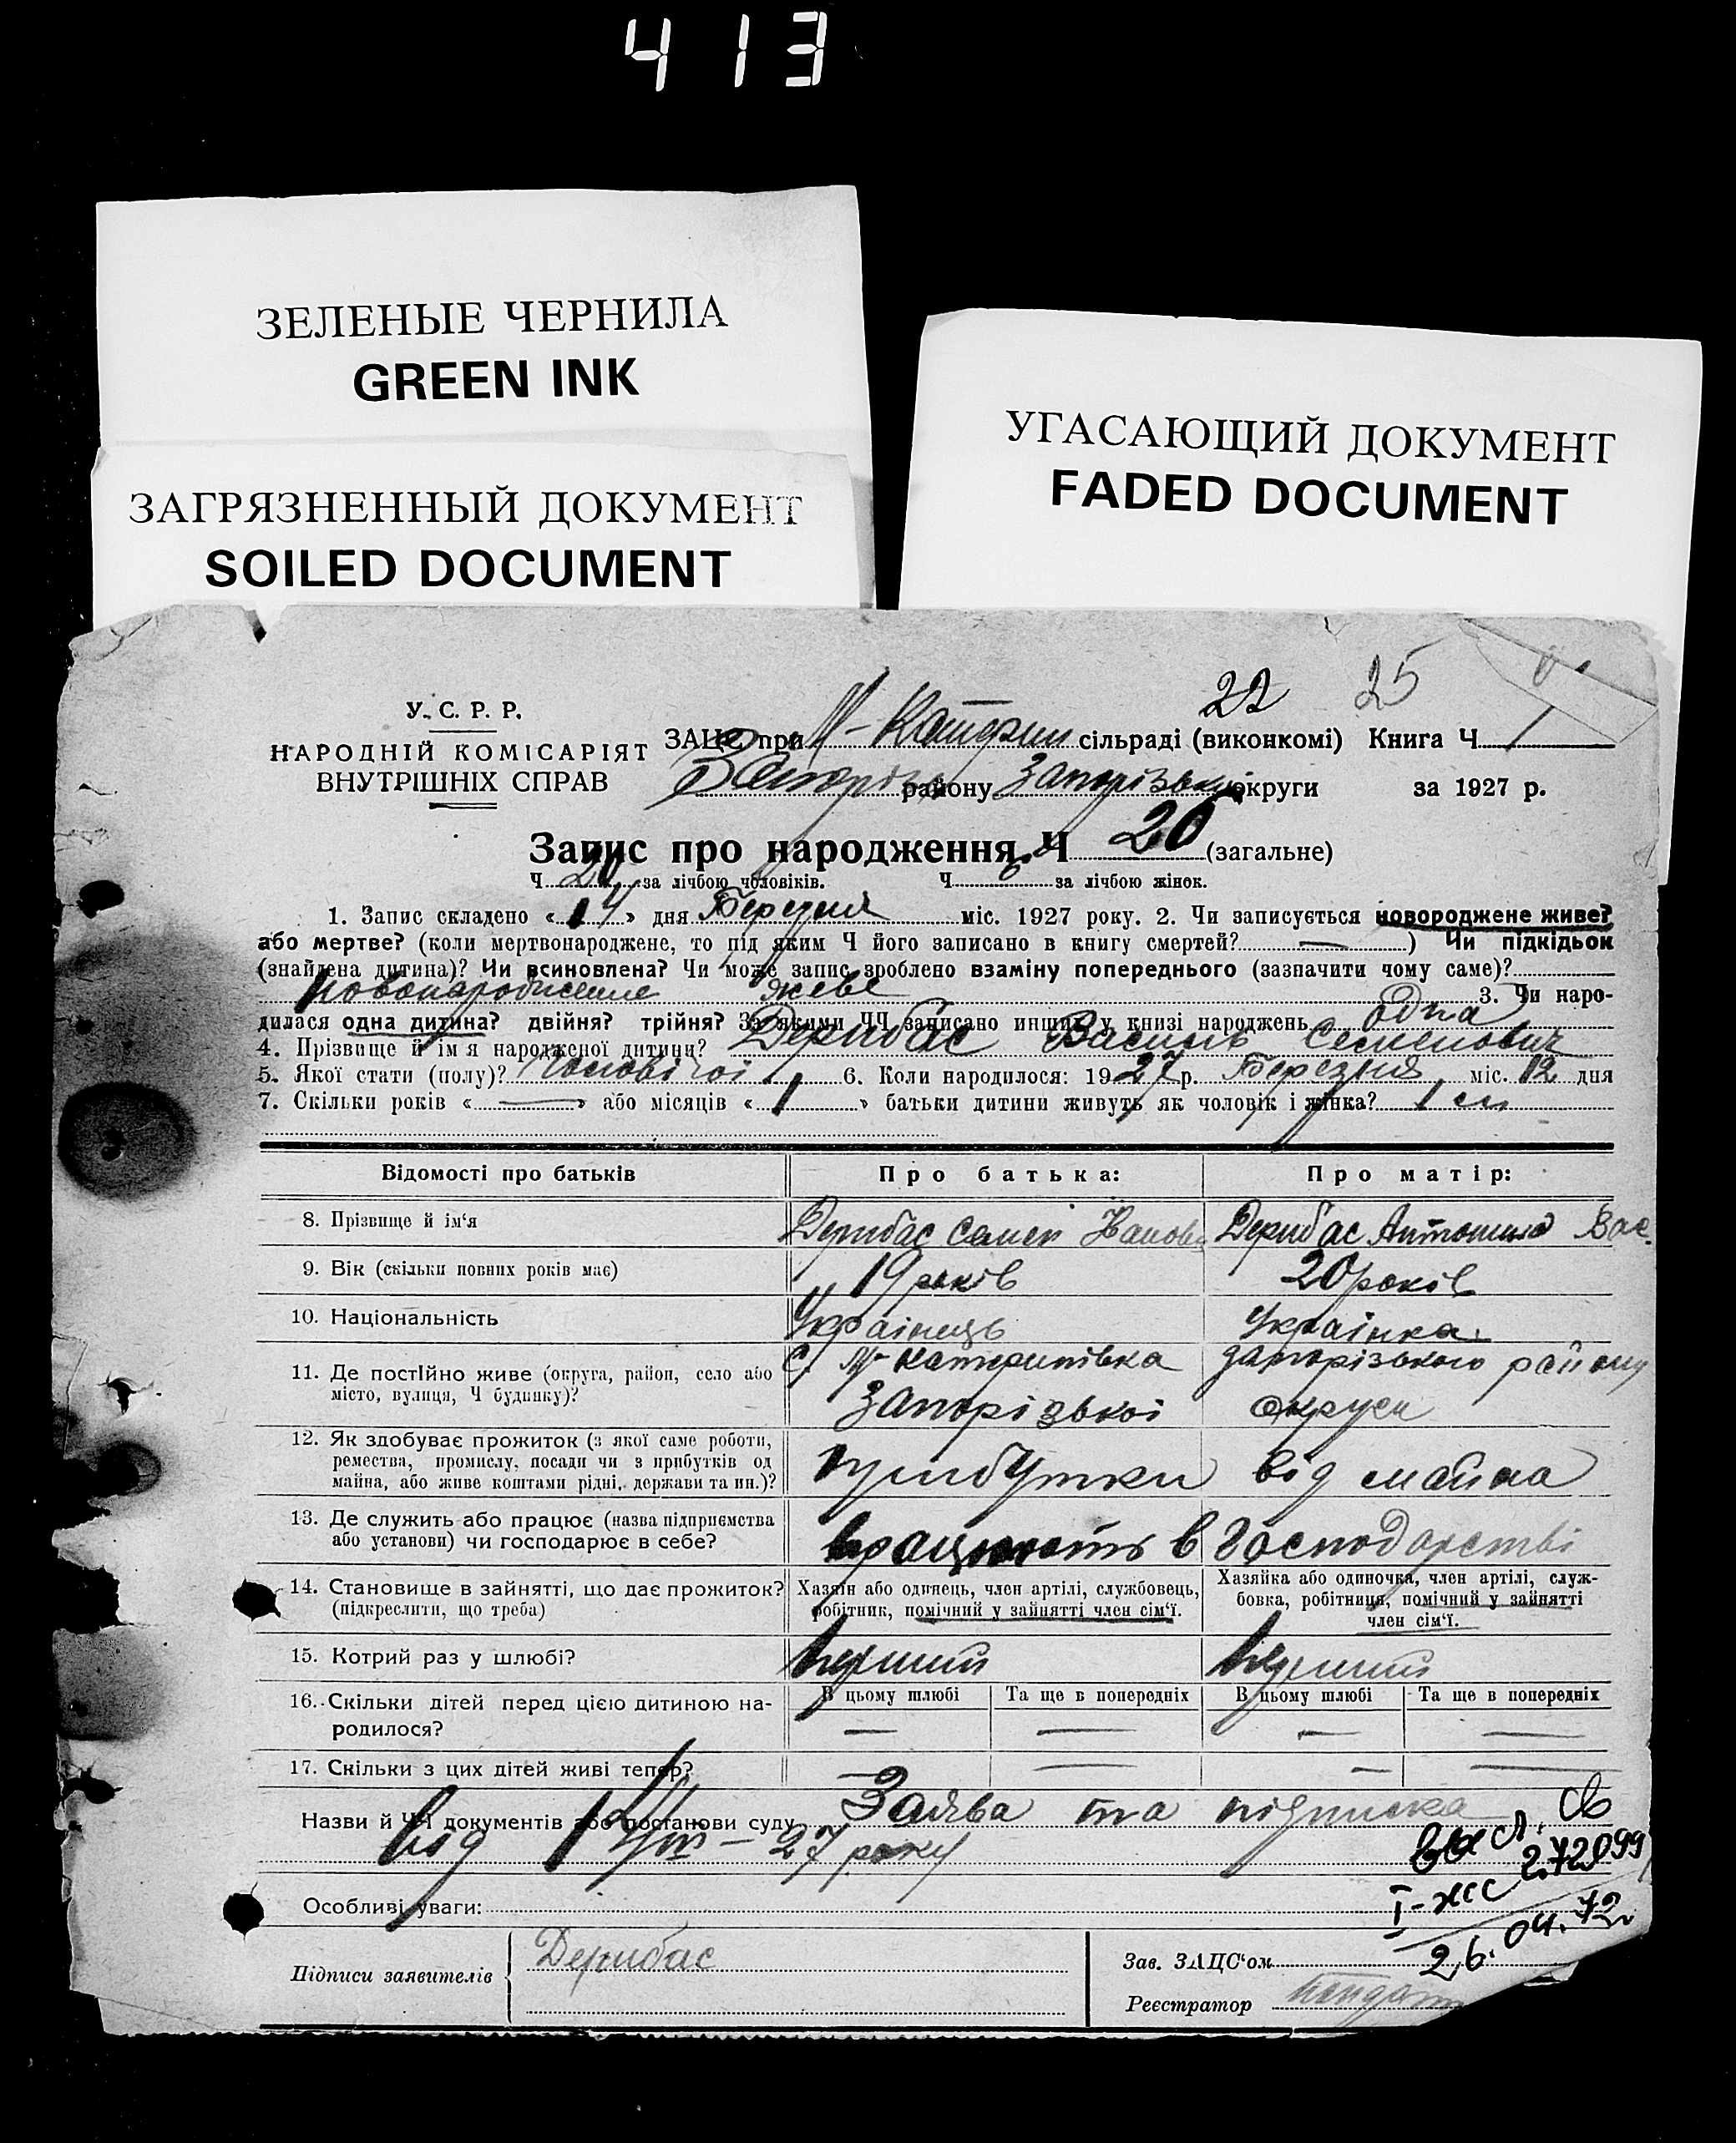 413
ЗЕЛЕНЫЕ ЧЕРНИЛА
GREEN INK
ЗАГРЯЗНЕННЫЙ ДОКУМЕНТ
SOILED DOCUMENT
УГАСАЮЩИЙ ДОКУМЕНТ
FADED DOCUMENT
22 25
У. С. Р. Р.
НАРОДНІЙ КОМІСАРІЯТ
ВНУТРІШНІХ СПРАВ
ЗАЦС при М- сільраді (виконкомі) Книга Ч 1
району Запорізьк округи за 1927 р.
Запис про народження Ч 20 (загальне)
Ч 20 за лічбою чоловіків. Ч за лічбою жінок.
1. Запис складено «14» дня Березня міс. 1927 року. 2. Чи записується новороджене живе?
або мертве? (коли мертвонароджене, то під яким Ч його записано в книгу смертей? —) Чи підкідьок
(знайдена дитина)? Чи всиновлена? Чи може запис зроблено взаміну попереднього (зазначити чому саме)?
живе 3. Чи наро-
дилася одна дитина? двійня? трійня? За якими ЧЧ записано инших у книзі народжень одна
4. Прізвище й ім'я народженої дитини? Дерибас Василь Семенович
5. Якої стати (полу)? Чоловічої 6. Коли народилося: 1927 р. Березня міс. 12 дня
7. Скільки років « — » або місяців « 1 » батьки дитини живуть як чоловік і жінка? 1 м
Відомості про батьків Про батька: Про матір:
8. Прізвище й ім'я Дерибас Семен Дерибас Антонина Вас.
9. Вік (скільки повних років має) 19 років 20 років
10. Національність Українець Українка.
11. Де постійно живе (округа, район, село або місто, вулиця, Ч будинку)? С. М-Катеринівка Запорізького району
Запорізької округи
12. Як здобуває прожиток (з якої саме роботи, ремества, промислу, посади чи з прибутків од майна, або живе коштами рідні, держави та ин.)? прибутки від майна
13. Де служить або працює (назва підприємства або установи) чи господарює в себе? працюють в господарстві
14. Становище в зайнятті, що дає прожиток? (підкреслити, що треба)
Хазяїн або одинець, член артілі, службовець, робітник, помічний у зайнятті член сім'ї.
Хазяйка або одиночка, член артілі, службовка, робітниця, помічний у зайнятті член сім'ї.
15. Котрий раз у шлюбі? перший перший
16. Скільки дітей перед цією дитиною народилося? В цьому шлюбі Та ще в попередніх В цьому шлюбі Та ще в попередніх
— — — —
17. Скільки з цих дітей живі тепер? — — — —
Назви й ЧЧ документів або постанови суду Заява та підписка
від 14/III – 27 року
Особливі уваги:
I-ЖС 272099
26.04.72
Підписи заявителів Дерибас
Зав. ЗАЦС'ом
Реєстратор